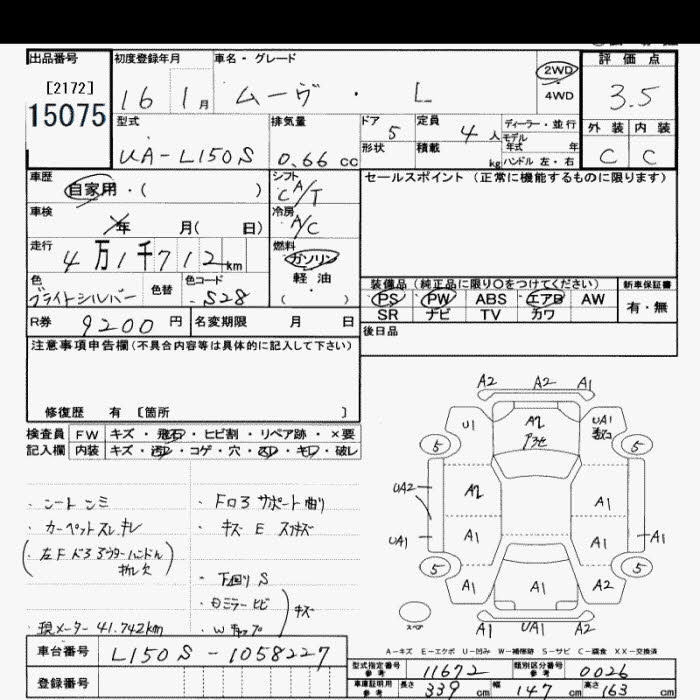 出品番号 初度登録年月 車名・グレード 2WD 評価点
[2172]
15075 16 1月 ムーヴ・L 4WD 3.5
型式 排気量 ドア 5 定員 4人 ディーラー・並行 外装 内装
モデル
年式 年
UA-L150S 0.66cc 形状 積載 kg ハンドル 左・右 C C
車歴 自家用・( ) シフト C A/T セールスポイント (正常に機能するものに限ります)
車検 年 月( 日) 冷房 A/C
走行 4万1千712km 燃料 ガソリン
軽油
( )
色 ブライトシルバー 色替 色コード S28
装備品 (純正品に限り○をつけてください) 新車保証書
PS PW ABS エアB AW 有・無
SR ナビ TV カワ
R券 9200円 名変期限 月 日 後日品
注意事項申告欄 (不具合内容等は具体的に記入して下さい)
修復歴 有 [箇所 ]
検査員 FW キズ・飛石・ヒビ割・リペア跡・×要
記入欄 内装 キズ・汚レ・コゲ・穴・スレ・キレ・破レ
A2 A2 A1
U1 A2 UA1
5 5
UA2 A2 A1
UA1 A1 A1 A1
5 5
A1 A1 A2
A1 UA1 A1
スペア
・シートシミ
・カーペットスレキレ
・FロアサポートF曲り
・キズ E スリキズ
・下回り S
・ミラーヒビ
キズ
・現メーター 41.742km
A-キズ E-エクボ U-凹み W-補修跡 S-サビ C-腐食 XX-交換済
車台番号 L150S-1058227
登録番号
型式指定番号 参考 11672 類別区分番号 参考 0026
車庫証明用 参考 長さ 339cm 幅 147cm 高さ 163cm